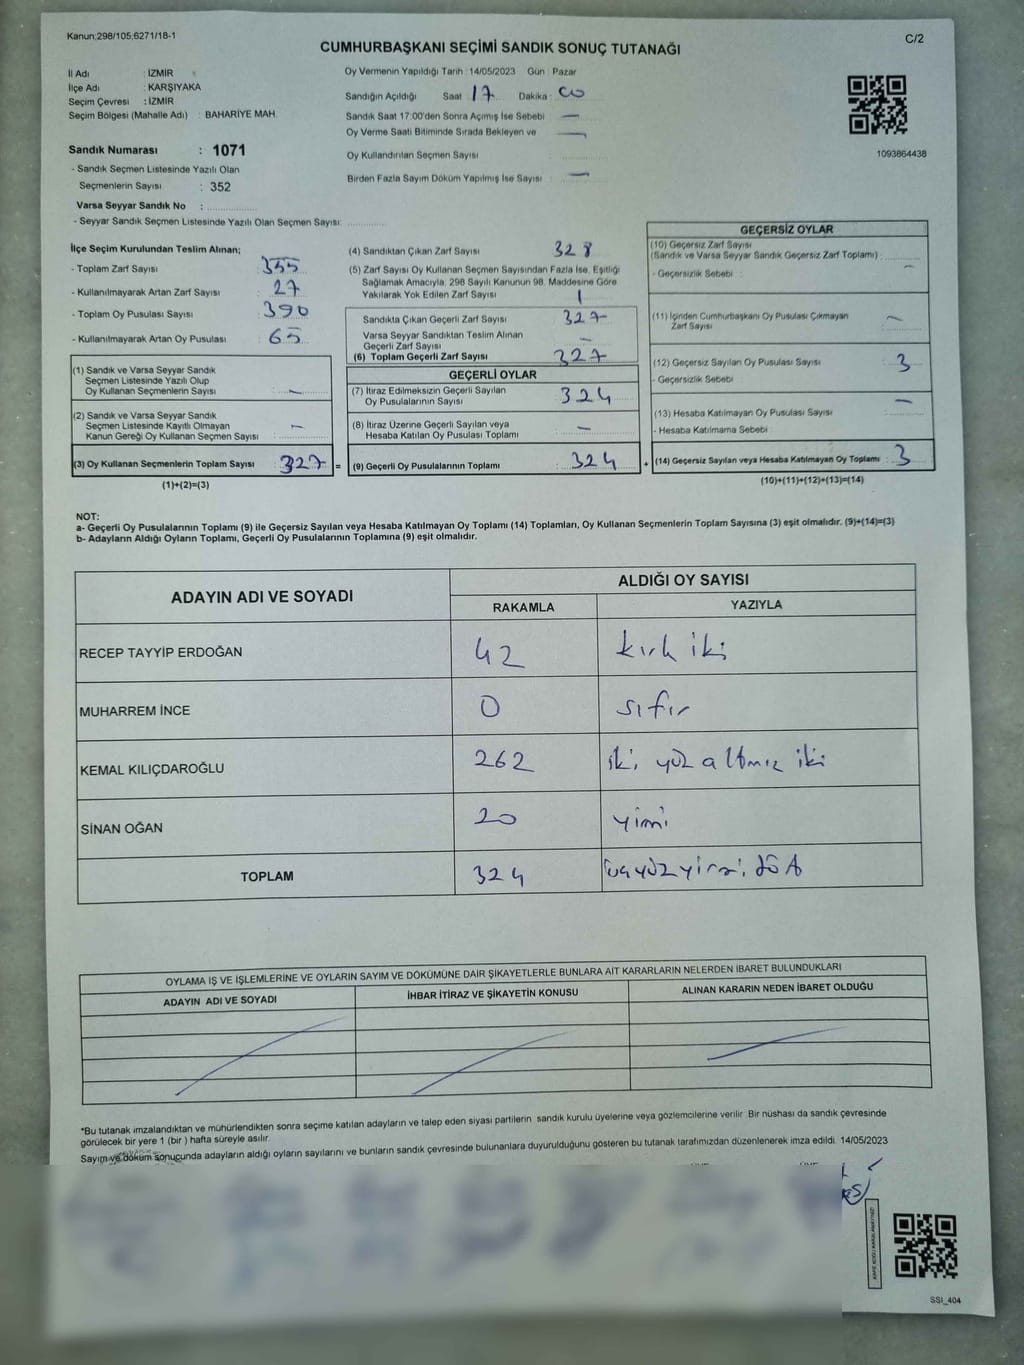 Kanun:298/105;6271/18-1
C/2
CUMHURBAŞKANI SEÇİMİ SANDIK SONUÇ TUTANAĞI
İl Adı : İZMİR
İlçe Adı : KARŞIYAKA
Seçim Çevresi : İZMİR
Seçim Bölgesi (Mahalle Adı) : BAHARİYE MAH.
Oy Vermenin Yapıldığı Tarih :14/05/2023 Gün : Pazar
Sandığın Açıldığı Saat 17 Dakika : 00
Sandık Saat 17:00'den Sonra Açımış İse Sebebi : —
Oy Verme Saati Bitiminde Sırada Bekleyen ve —
Oy Kullandırılan Seçmen Sayısı
Birden Fazla Sayım Döküm Yapılmış İse Sayısı : —
1093864438
Sandık Numarası : 1071
- Sandık Seçmen Listesinde Yazılı Olan
Seçmenlerin Sayısı : 352
Varsa Seyyar Sandık No :
- Seyyar Sandık Seçmen Listesinde Yazılı Olan Seçmen Sayısı:
İlçe Seçim Kurulundan Teslim Alınan;
- Toplam Zarf Sayısı : 355
- Kullanılmayarak Artan Zarf Sayısı : 27
- Toplam Oy Pusulası Sayısı : 390
- Kullanılmayarak Artan Oy Pusulası : 65
(1) Sandık ve Varsa Seyyar Sandık
Seçmen Listesinde Yazılı Olup
Oy Kullanan Seçmenlerin Sayısı : —
(2) Sandık ve Varsa Seyyar Sandık
Seçmen Listesinde Kayıtlı Olmayan
Kanun Gereği Oy Kullanan Seçmen Sayısı : —
(3) Oy Kullanan Seçmenlerin Toplam Sayısı : 327 =
(1)+(2)=(3)
(4) Sandıktan Çıkan Zarf Sayısı 328
(5) Zarf Sayısı Oy Kullanan Seçmen Sayısından Fazla İse, Eşitliği
Sağlamak Amacıyla; 298 Sayılı Kanunun 98. Maddesine Göre
Yakılarak Yok Edilen Zarf Sayısı 1
Sandıkta Çıkan Geçerli Zarf Sayısı : 327
Varsa Seyyar Sandıktan Teslim Alınan
Geçerli Zarf Sayısı : —
(6) Toplam Geçerli Zarf Sayısı : 327
GEÇERLİ OYLAR
(7) İtiraz Edilmeksizin Geçerli Sayılan
Oy Pusulalarının Sayısı : 324
(8) İtiraz Üzerine Geçerli Sayılan veya
Hesaba Katılan Oy Pusulası Toplamı : —
(9) Geçerli Oy Pusulalarının Toplamı : 324 +
GEÇERSİZ OYLAR
(10) Geçersiz Zarf Sayısı
(Sandık ve Varsa Seyyar Sandık Geçersiz Zarf Toplamı) : —
- Geçersizlik Sebebi :
(11) İçinden Cumhurbaşkanı Oy Pusulası Çıkmayan —
Zarf Sayısı
(12) Geçersiz Sayılan Oy Pusulası Sayısı : 3
- Geçersizlik Sebebi :
(13) Hesaba Katılmayan Oy Pusulası Sayısı : —
- Hesaba Katılmama Sebebi :
(14) Geçersiz Sayılan veya Hesaba Katılmayan Oy Toplamı : 3
(10)+(11)+(12)+(13)=(14)
NOT:
a- Geçerli Oy Pusulalarının Toplamı (9) ile Geçersiz Sayılan veya Hesaba Katılmayan Oy Toplamı (14) Toplamları, Oy Kullanan Seçmenlerin Toplam Sayısına (3) eşit olmalıdır. (9)+(14)=(3)
b- Adayların Aldığı Oyların Toplamı, Geçerli Oy Pusulalarının Toplamına (9) eşit olmalıdır.
ADAYIN ADI VE SOYADI
ALDIĞI OY SAYISI
RAKAMLA YAZIYLA
RECEP TAYYİP ERDOĞAN 42 kırk iki
MUHARREM İNCE 0 sıfır
KEMAL KILIÇDAROĞLU 262 iki yüz altmış iki
SİNAN OĞAN 20 yirmi
TOPLAM 324 üçyüzyirmi dört
OYLAMA İŞ VE İŞLEMLERİNE VE OYLARIN SAYIM VE DÖKÜMÜNE DAİR ŞİKAYETLERLE BUNLARA AİT KARARLARIN NELERDEN İBARET BULUNDUKLARI
ADAYIN ADI VE SOYADI İHBAR İTİRAZ VE ŞİKAYETİN KONUSU ALINAN KARARIN NEDEN İBARET OLDUĞU
*Bu tutanak imzalandıktan ve mühürlendikten sonra seçime katılan adayların ve talep eden siyasi partilerin sandık kurulu üyelerine veya gözlemcilerine verilir. Bir nüshası da sandık çevresinde
görülecek bir yere 1 (bir ) hafta süreyle asılır.
Sayım ve döküm sonucunda adayların aldığı oyların sayılarını ve bunların sandık çevresinde bulunanlara duyurulduğunu gösteren bu tutanak tarafımızdan düzenlenerek imza edildi. 14/05/2023
SSI_404